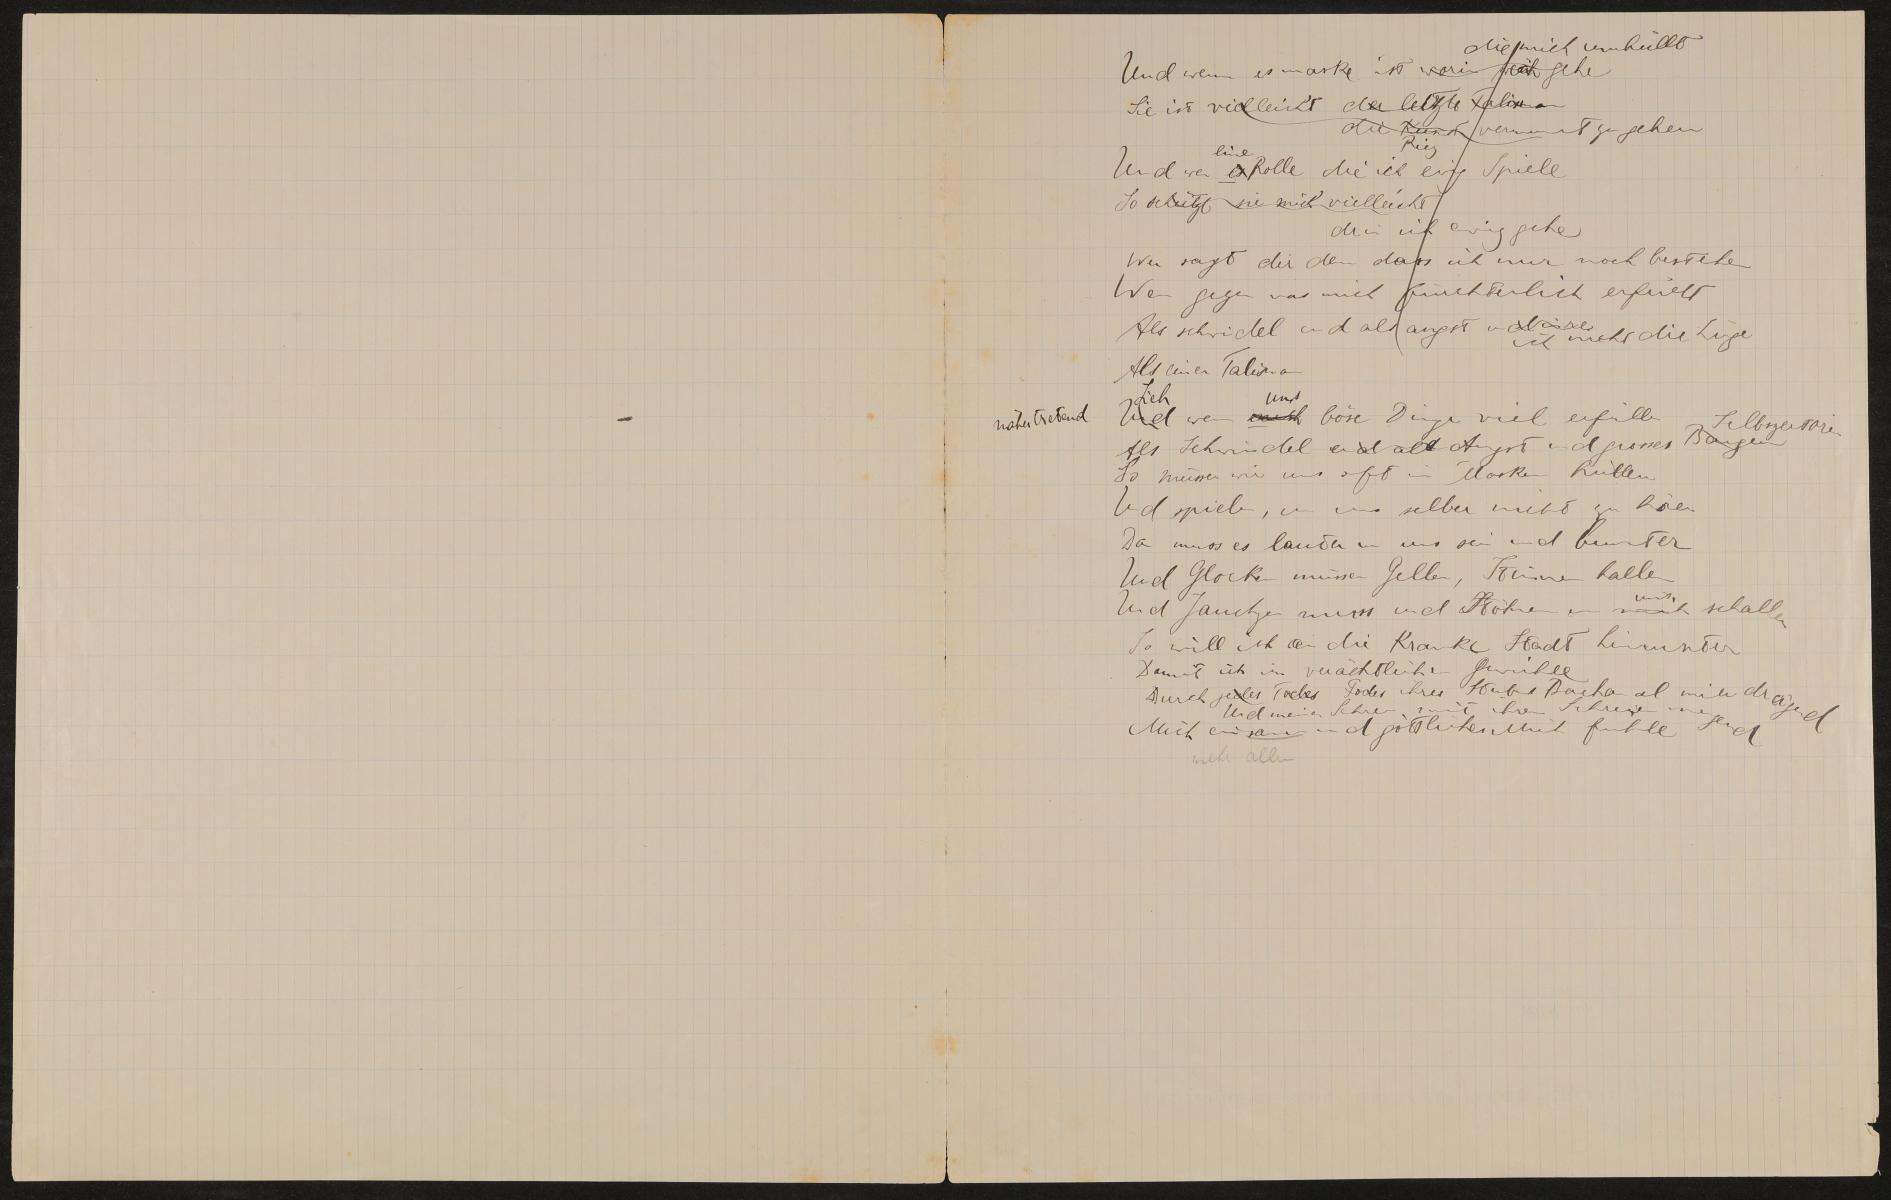 die mich umhüllt
Und wenn es maske ist worin ich gehe
Sie ist vielleicht der letzte Talisman
die Kunst vermummt zu gehen
eine
Und wen es Rolle die ich ewig Spiele
So schützt sie mich vielleicht
drin ich ewig gehe
Wer sagt dir den dass ich nur noch bestehe
Wen gegen was mich fürchterlich erfüllt
Als schwidel und als angst und
ich mehr die Lüge
Als einen Talisman
Sieh uns
nähertretend Und wen mich böse Dinge viel erfüllen
Selbszerstören
Als Schwindel und als Angst und grosses Bangen
So müssen wir uns oft in Masken hüllen
Und spielen, um uns selber nicht zu hören
Da muss es lauter um uns sein und bunter
Und Glocken müssen Gellen, Stimmen hallen
uns
Und Jauchzen muss und Stöhnen um mich schallen
So will ich an die Kranke Stadt hinunter
Damit ich im verächtlichen Gewühle
Durch jedes Todes ihres Bachanal mich drägend
Und meinen Schrei mit ihren Schreien mengend
Mich einsam und göttliches Mich fühle
mehr allen